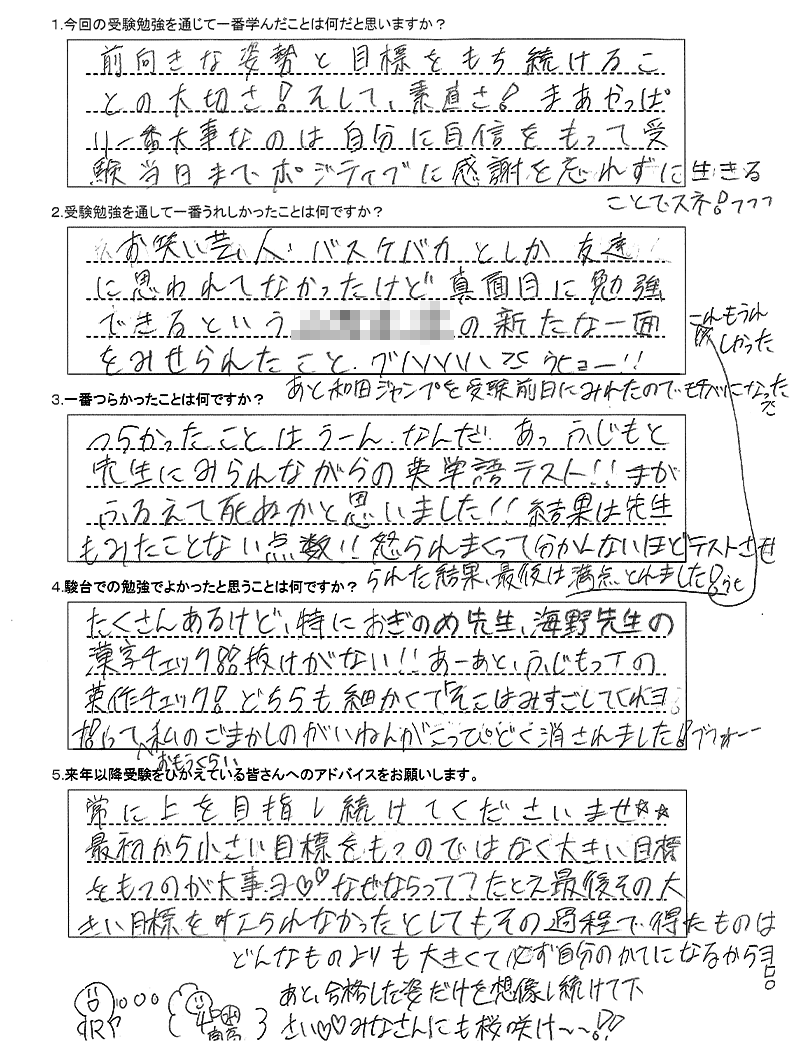 1.今回の受験勉強を通じて一番学んだことは何だと思いますか？
前向きな姿勢と目標をもち続けるこ
との大切さ！そして、素直さ！まあやっぱ
り一番大事なのは自分に自信をもって受
験当日までポジティブに感謝を忘れずに生きる
ことでスネ！フフフ
2.受験勉強を通して一番うれしかったことは何ですか？
お笑い芸人、バスケバカとしか友達
に思われてなかったけど真面目に勉強
できるという
の新たな一面
をみせられたこと。
ウヒョー!!
これもうれ
しかった
あと和田ジャンプを受験前日にみれたのでモチベになった
3.一番つらかったことは何ですか？
つらかったことはうーん、なんだ、あっふじもと
先生にみられながらの英単語テスト!!手が
ふるえて死ぬかと思いました!!結果は先生
もみたことない点数!!怒られまくって分かんないほどテストさせ
られた結果、最後は満点とれました！
4.駿台での勉強でよかったと思うことは何ですか？
たくさんあるけど、特におぎのめ先生、海野先生の
漢字チェック!!抜けがない!!あーあと、ふじもっての
英作チェック！どちらも細かくて「そこはみすごしてくれヨ
おもうくらい
私のごまかしのがいねんがこっぴどく消されました！ブフォーー
5.来年以降受験をひかえている皆さんへのアドバイスをお願いします。
常に上を目指し続けてくださいませ☆☆
最初から小さい目標をもつのではなく大きい目標
をもつのが大事ヨ♡♡なぜならって？たとえ最後その大
きい目標を叶えられなかったとしてもその過程で得たものは
どんなものよりも大きくて必ず自分のかてになるからヨ
あと、合格した姿だけを想像し続けて下
さい♡♡みなさんにも桜咲け〜〜!!